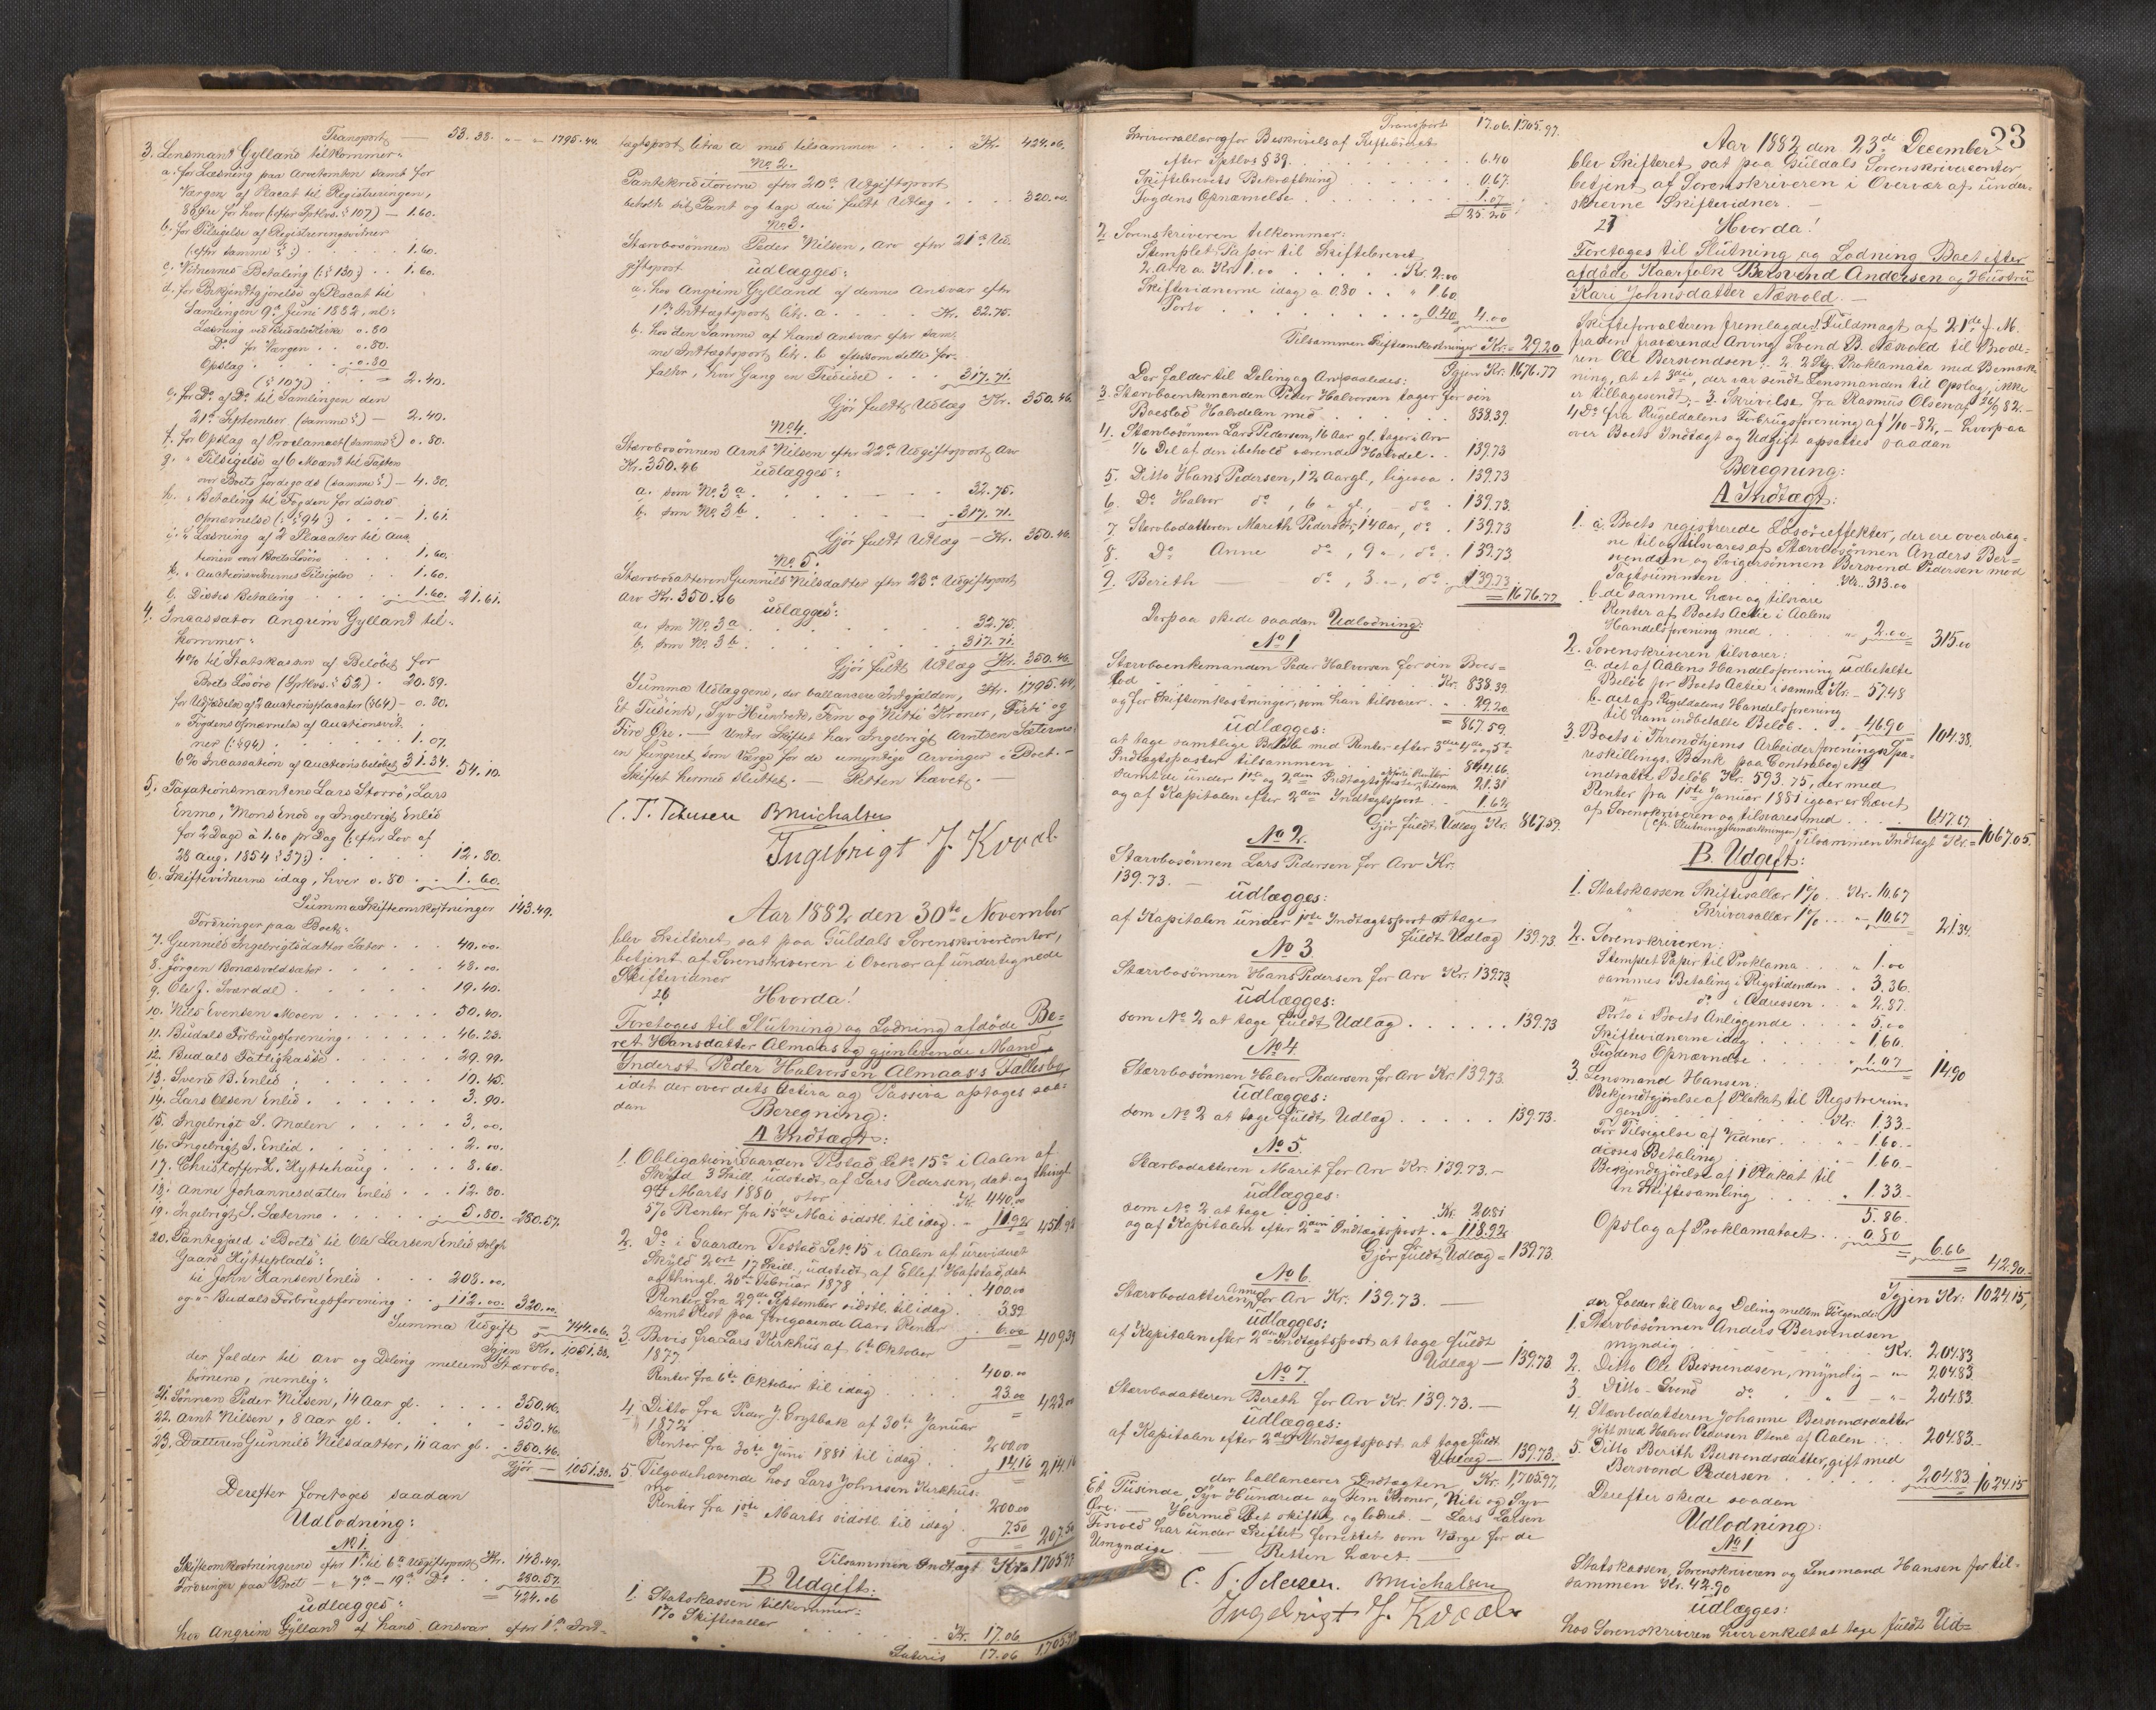 Transport — 53.38. " " 1795.44.
3. Lensmand Gylland tilkommer:
a. for Læsning paa Arvetomten samt for
Værgen af Placat til Registreringen,
80 Øre for hver (efter Sptlvs. § 107) — 1.60.
b. for Tilsigelse af Registreringsvidner
(efter samme §) . . . 1.60.
c. Vidnernes Betaling (: § 130:) . . 1.60.
d. for Bekjendtgjørelse af Placat til
Samlingen 9de Juni 1882, nl:
Læsning ved Budals Kirke 0.80
Do for Værgen . . 0.80.
Opslag . . . . 0.80
(§ 107) . . = 2.40.
e. for Do af Do til Samlingen den
21de September (samme §) — 2.40.
f. for Opslag af Proclamaet (samme §) 0.80.
g. " Tilsigelse af 6 Mænd til Taxten
over Boets Jordegods (samme §) — 4.80.
h. " Betaling til Fogden for disses
Opnævnelse (: § 94:) . . . — 1.61.
i. " Læsning af 2 Placater til Auc-
tionen over Boets Løsøre . . . 1.60.
k. " Auctionsvidnernes Tilsigelse . . 1.60.
l. Disses Betaling . . . . 1.60. 21.61.
4. Incassator Angrim Gylland til-
kommer:
4% til Statskassen af Beløbet for
Boets Løsøre (Sptlvs. § 52) . 20.89.
for Udstedelse af 2 Auctionsplacater (§ 64) — 0.80.
" Fogdens Opnævnelse af Auctionsvid-
ner (: § 94) . . . . 1.07.
6% Incassation af Auctionsbeløbet 31.34. 54.10.
5. Taxationsmændene Lars Storrø, Lars
Enmo, Mons Enod og Ingebrigt Enlid
for 2 Dage à 1.60 pr Dag (: efter Lov af
28 Aug. 1854 § 37:) . . . . 12.80.
6. Skiftevidnerne idag, hver 0.80 . . 1.60.
Summa Skifteomkostninger 143.49.
Fordringer paa Boet:
7. Gunnild Ingebrigtsdatter Sæter . . . 40.00.
8. Jørgen Bonasvoldsæter . . . . 48.00.
9. Ole J. Sværddal . . . . 19.40.
10. Nils Evensen Moen . . . . 30.40.
11. Budals Forbrugsforening . . . . 46.23.
12. Budals Fattigkasse . . . . 29.99.
13. Svend B. Enlid . . . . 10.45.
14. Lars Olsen Enlid . . . . 3.90.
15. Ingebrigt S. Mælen . . . . 3.00.
16. Ingebrigt I. Enlid . . . . 2.00.
17. Christoffer L. Kyttehaug . . . . 8.60.
18. Anne Johannesdatter Enlid . . . 12.80.
19. Ingebrigt S. Sætermo . . . . 5.80. 280.57.
20. Pantegjæld i Boets til Ole Larsen Enlid solgte
Gaard Kyttepladd:
til John Hansen Enlid . . . 208.00.
og " Budals Forbrugsforening . . 112.00. 320.00.
Summa Udgift = 744.06.
Igjen Kr. 1051.38.
der falder til Arv og Deling mellem Stærvbo-
børnene, nemlig:
21. Sønnen Peder Nilsen, 14 Aar gl. . . . 350.46.
22. Arnt Nilsen, 8 Aar gl. . . . 350.46.
23. Datteren Gunnild Nilsdatter, 11 Aar gl. . . 350.46.
Gjør — 1051.38.
Derefter foretoges saadan
Udlodning:
No 1.
Skifteomkostningerne efter 1ste til 6te Udgiftspost Kr. 143.49.
Fordringer paa Boet — " 7de — 19de Do . . 280.57.
udlægges: = 424.06
hos Angrim Gylland af hans Ansvar efter 1ste Ind-
tægtspost litra a med tilsammen . . . Kr. 424.06.
No 2.
Pantekreditorerne efter 20de Udgiftspost
beholde sit Pant og tage deri fuldt Udlæg . . . . 320.00.
No 3.
Stærvbosønnen Peder Nilsen, Arv efter 21de Ud-
giftspost udlægges:
a. hos Angrim Gylland af dennes Ansvar efter
1ste Indtægtspost litr. a . . . . Kr. 32.75.
b. hos den Samme af hans Ansvar efter sam-
me Indtægtspost litr. b eftersom dette for-
falder, hver Gang en Trediedel . . . 317.71.
Gjør fuldt Udlæg Kr. 350.46.
No 4.
Stærvbosønnen Arnt Nilsen efter 22de Udgiftspost Arv
Kr. 350.46 udlægges:
a. som No 3 a . . . . 32.75.
b. som No 3 b . . . . 317.71.
Gjør fuldt Udlæg — Kr. 350.46.
No 5.
Stærvbodatteren Gunnild Nilsdatter efter 23de Udgiftspost
Arv Kr. 350.46 udlægges:
a. som No 3 a . . . . 32.75.
b. som No 3 b . . . . 317.71.
Gjør fuldt Udlæg Kr. 350.46.
Summa Udlæggene, der ballancere Indgjælden, Kr. 1795.44,
Et Tusinde, Syv Hundrede, Fem og Nitti Kroner, Firti og
Fire Øre. — Under Skiftet har Ingebrigt Arntsen Sætermo
en fungeret som Værge for de umyndige Arvinger i Boet. —
Skiftet hermed sluttet. — Retten hævet. —
C. T. Petersen BMichalsen
Ingebrigt J. Kvaal
Aar 1882 den 30te November
blev Skifteret sat paa Guldals Sorenskrivercontor,
betjent af Sorenskriveren i Overvær af undertegnede
Skiftevidner
26 Hvorda!
Foretoges til Slutning og Lodning afdøde Be-
ret Hansdatter Almaas og gjenlevende Mand
Inderst Peder Halvorsen Almaas's Fællesbo
idet der over dets Activa og Passiva optoges saa-
dan Beregning:
A Indtægt:
1. Obligation i Gaarden Testad Lto 15a i Aalen af
Skyld 3 Skill. udstedt af Lars Pedersen, dat. og thingl.
9de Marts 1880, stor . . . Kr. 440.00
5% Renter fra 15de Mai sidstl. til idag . – 11.92 451.92
2. Do i Gaarden Testad Lto 15 i Aalen af urevideret
Skyld 2 Ort 17 Skill., udstedt af Ellef Hafstad, dat.
og thingl. 20de Februar 1878 . . . . 400.00
Renter fra 29de September sidstl. til idag . . 3.39
samt Rest paa foregaaende Aars Renter . . 6.00 409.39
3. Bevis fra Lars Kirkhus af 6te Oktober
1877 . . . . 400.00
Renter fra 6te Oktober til idag . . . . 23.00 423.00
4. Ditto fra Peder J. Grytbak af 30te Januar
1872 . . . . 200.00
Renter fra 30te Juni 1881 til idag . . 14.16 214.16
5. Tilgodehavende hos Lars Johnsen Kirkhus-
mo . . . . 200.00
Renter fra 1ste Marts sidstl. til idag . . 7.50 207.50
Tilsammen Indtægt Kr. 1705.97
B Udgift:
1. Statskassen tilkommer:
1% Skiftesallær . . . . Kr. 17.06
Lateris 17.06 1705.97
Transport 17.06. 1705.97.
Skriversallær og for Beskrivelse af Skiftebrevet
efter Sptlvs § 39 . . . . 6.40
Skiftebrevets Bekræftning . . . . 0.67.
Fogdens Opnævnelse . . . . 1.07
= 25.20
2. Sorenskriveren tilkommer:
Stemplet Papir til Skiftebrevet
2 Ark a Kr. 1.00 . . . . Kr. 2.00
Skiftevidnerne idag a 0.80 . . " 1.60
Porto . . . . " 0.40 4.00
Tilsammen Skifteomkostninger Kr. = 29.20
Igjen Kr. 1676.77
Der falder til Deling og Arv saaledes:
3. Stærvboenkemanden Peder Halvorsen tager for sin
Boeslod Halvdelen med . . . . 838.39.
4. Stærvbosønnen Lars Pedersen, 16 Aar gl. tager i Arv
1/6 Del af den ibehold værende Halvdel . . 139.73
5. Ditto Hans Pedersen, 12 Aar gl., ligesaa . 139.73
6. Do Halvor do, 6 " gl., — do . 139.73.
7. Stærvbodatteren Mareth Pedersdtr., 14 Aar, do . 139.73
8. Do Anne do, 9 " — , do . 139.73
9. Berith — do, 3 " — , do . 139.73
= 1676.77
Derpaa skede saadan Udlodning:
No 1
Stærvboenkemanden Peder Halvorsen for sin Boes-
lod . . . . Kr. 838.39.
og for Skifteomkostninger, som han tilsvarer . . 29.20
udlægges: = 867.59.
at tage samtlige Beløb med Renter efter 3die, 4de og 5te
Indtægtsposter tilsammen . . . . 844.66.
samt de under 1ste og 2den Indtægtsposter opførte Renter, tilsam. 21.31
og af Kapitalen efter 2den Indtægtspost . – 1.62
Gjør fuldt Udlæg Kr. 867.59.
No 2.
Stærvbosønnen Lars Pedersen for Arv Kr.
139.73. —
udlægges:
af Kapitalen under 1ste Indtægtspost at tage
fuldt Udlæg 139.73.
No 3
Stærvbosønnen Hans Pedersen for Arv Kr. 139.73
udlægges:
som No 2 at tage fuldt Udlæg . . . . 139.73
No 4
Stærvbosønnen Halvor Pedersen for Arv Kr. 139.73.
udlægges:
som No 2 at tage fuldt Udlæg . . . . 139.73.
No 5
Stærvbodatteren Marit for Arv Kr. 139.73. —
udlægges:
som No 2 at tage . . . . Kr. 20.81
og af Kapitalen efter 2den Indtægtspost . . 118.92
Gjør fuldt Udlæg = 139.73
No 6.
Stærvbodatteren Anne for Arv Kr. 139.73. —
udlægges:
af Kapitalen efter 2den Indtægtspost at tage fuldt
Udlæg — 139.73
No 7.
Stærvbodatteren Bereth for Arv Kr. 139.73. —
udlægges:
af Kapitalen efter 2den Indtægtspost at tage fuldt
Udlæg — 139.73.
der ballancerer Indtægten Kr. 1705.97,
Et Tusinde, Syv Hundrede og Fem Kroner, Niti og Syv
Øre. — Hermed Boet skiftet og lodnet. — Lars Larsen
Tosvold har under Skiftet forrettet som Værge for de
Umyndige. — Retten hævet. —
C. T. Petersen. BMichalsen
Ingebrigt J. Kvaal
23
Aar 1882 den 23de December
blev Skifteret sat paa Guldals Sorenskrivercontor,
betjent af Sorenskriveren i Overvær af under-
skrevne Skiftevidner. —
27 Hvorda!
Foretoges til Slutning og Lodning Boet efter
afdøde Kaarfolk Bersvend Andersen og Hustru
Kari Johnsdatter Næsvold. —
Skifteforvalteren fremlagde 1. Fuldmagt af 21de f. M.
fra den fraværende Arving Svend B. Næsvold til Brode-
ren Ole Bersvendsen. 2. 2 Stk. Proklamata med Bemærk-
ning, at et 3die, der var sendt Lensmanden til Opslag, ikke
er tilbagesendt, – 3. Skrivelse fra Rasmus Olsen af 26/9 82. —
4. Do fra Rugeldalens Forbrugsforening af 1/10 – 82, – hvorpaa
over Boets Indtægt og Udgift opsattes saadan
Beregning:
A Indtægt:
1. a. Boets registrerede Løsøreeffekter, der ere overdrag-
ne til og tilsvares af Stærvbosønnen Anders Ber-
svendsen og Svigersønnen Bersvend Pedersen med
Taxtsummen . . . . Kr. 313.00
b. de samme hæve og tilsvare
Renter af Boets Actie i Aalens
Handelsforening med . . . " 2.00 315.00
2. Sorenskriveren tilsvarer:
a. det af Aalens Handelsforening udbetalte
Beløb for Boets Actie i samme Kr. – 57.48
b. det af Rugeldalens Handelsforening
til ham indbetalte Beløb . . . . 46.90 104.38.
3. Boets i Throndhjems Arbeiderforenings Spa-
reskillings Bank paa Contrabog No
indsatte Beløb Kr. 593.75, der med
Renter fra 1ste Januar 1881 igaar er hævet
af Sorenskriveren og tilsvares med . . . . 647.67
(cfr. Slutningsbemærkningen) Tilsammen Indtægt Kr. = 1067.05.
B. Udgift:
1. Statskassen Skiftesallær 1% . . Kr. 10.67
" Skriversallær 1% . . . – 10.67 21.34.
2. Sorenskriveren:
Stemplet Papir til Proklama . . . " 1.00
sammes Betaling i Rigstidenden . . " 3.36.
" do i Adressen . . " 2.87.
Porto i Boets Anliggende . . . . " 5.00
Skiftevidnerne idag . . . . " 1.60.
Fogdens Opnævnelse . . . . " 1.07 14.90
3. Lensmand Hansen:
Bekjendtgjørelse af Plakat til Registrerin-
gen . . . . Kr. 1.33. –
For Tilsigelse af Vidner . . . – 1.60. –
disses Betaling . . . . – 1.60. –
Bekjendtgjørelse af 1 Plakat til
en Skiftesamling . . . . " 1.33 –
5.86.
Opslag af Proklamataet . . . 0.80
= 6.66
= 42.90. —
Igjen Kr: 1024.15,
der falder til Arv og Deling mellem Følgende:
1. Stærvbosønnen Anders Bersvendsen
myndig . . . . Kr. 204.83
2. Ditto Ole Bersvendsen, myndig — " 204.83
3. Ditto – Svend do " " — " — 204.83
4. Stærvbodatteren Johanne Bersvendsdatter
gift med Halvor Pedersen Stene af Aalen . . . 204.83. –
5. Ditto Berith Bersvendsdatter, gift med
Bersvend Pedersen . . . . 204.83 – 1024.15
Derefter skede saadan
Udlodning:
No 1
Statskassen, Sorenskriveren og Lensmand Hansen for til-
sammen Kr. 42.90
udlægges:
hos Sorenskriveren hver enkelt at tage fuldt Ud-